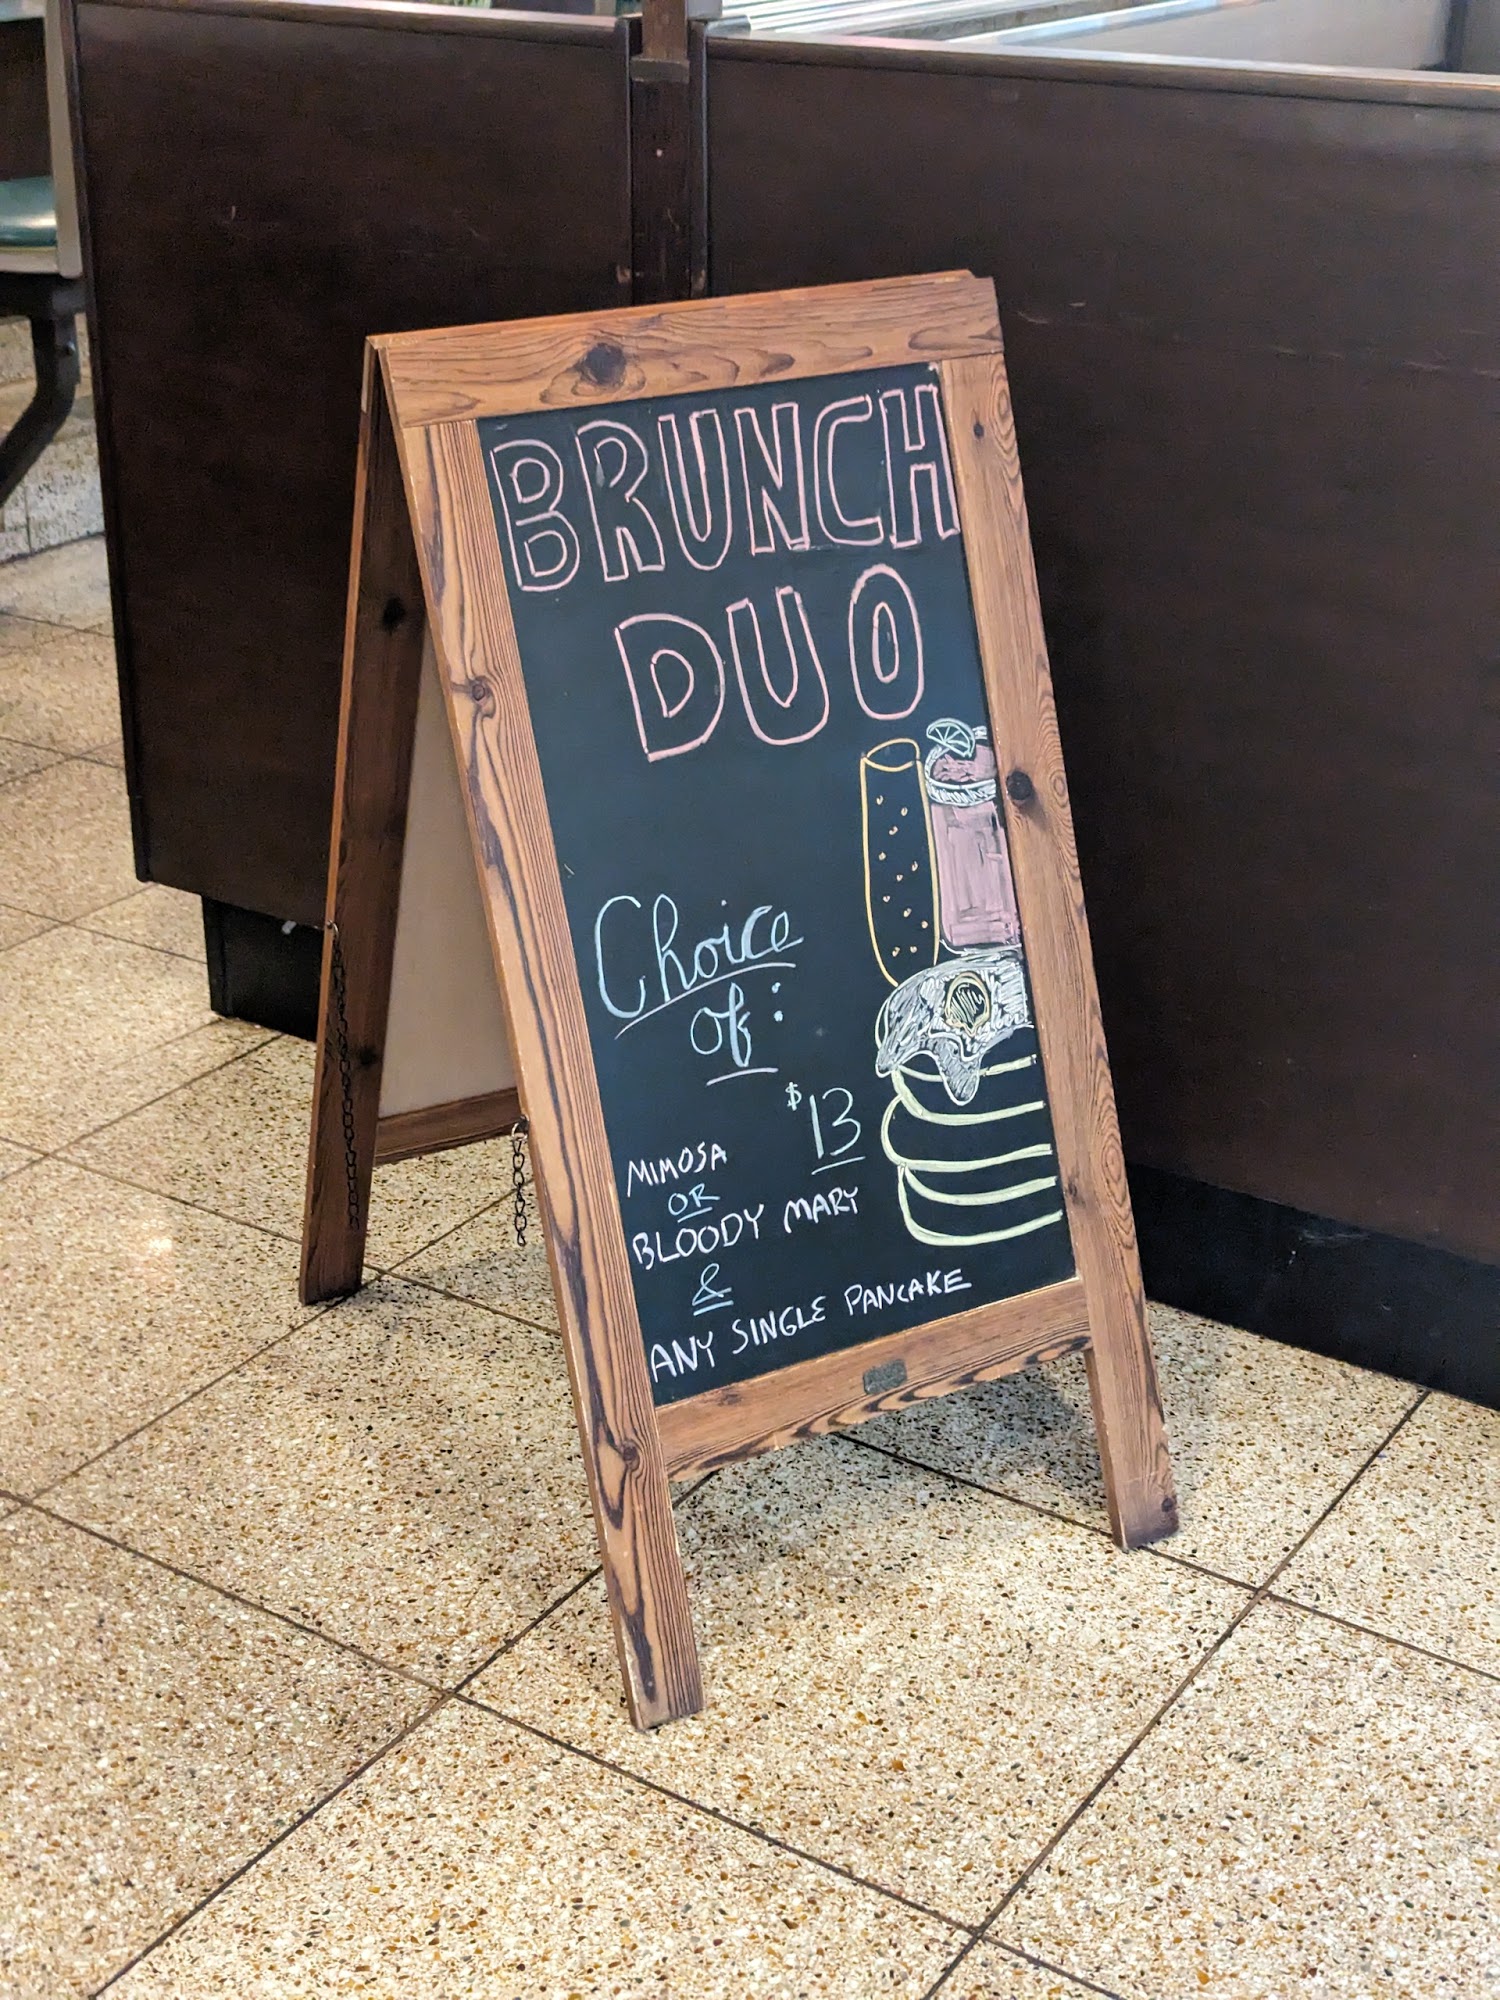 BRUNCH
DUO
Choice
of:
$13
MIMOSA
OR
BLOODY MARY
&
ANY SINGLE PANCAKE